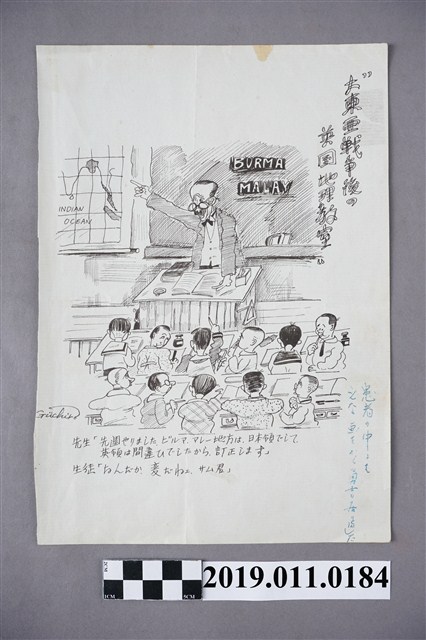 "大東亜戦争後の
英国地理教室"
BURMA
MALAY
INDIAN
OCEAN
先生「先週やりました、ビルマ、マレー地方は、日本領でして
英領は間違ひでしたから、訂正します」
生徒「なんだか、変だねェ、サム君」
2019.011.0184
1CM
5CM